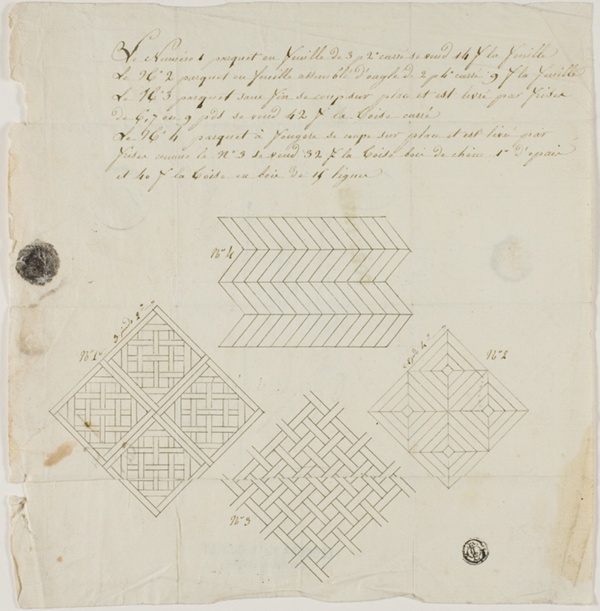 Le Numéro 1 parquet en feuille de 3 p 2° carré se vend 14 f la feuille
Le N° 2 parquet en feuille de 2 p 4° carré 9 f la feuille
Le N° 3 parquet sans fin se coup sur place et est livré par frise
de 6, 7 ou 9 pds se vend 42 f la toise carré
Le N° 4 parquet à fougere se coupe sur place et est livré par
frise comme le N° 3 se vend 32 f la toise bois de chêne 1° d'epais
et 40 f la toise en bois de 15 lignes
N° 4
3 2°
N° 1
2 4°
N° 2
N° 3